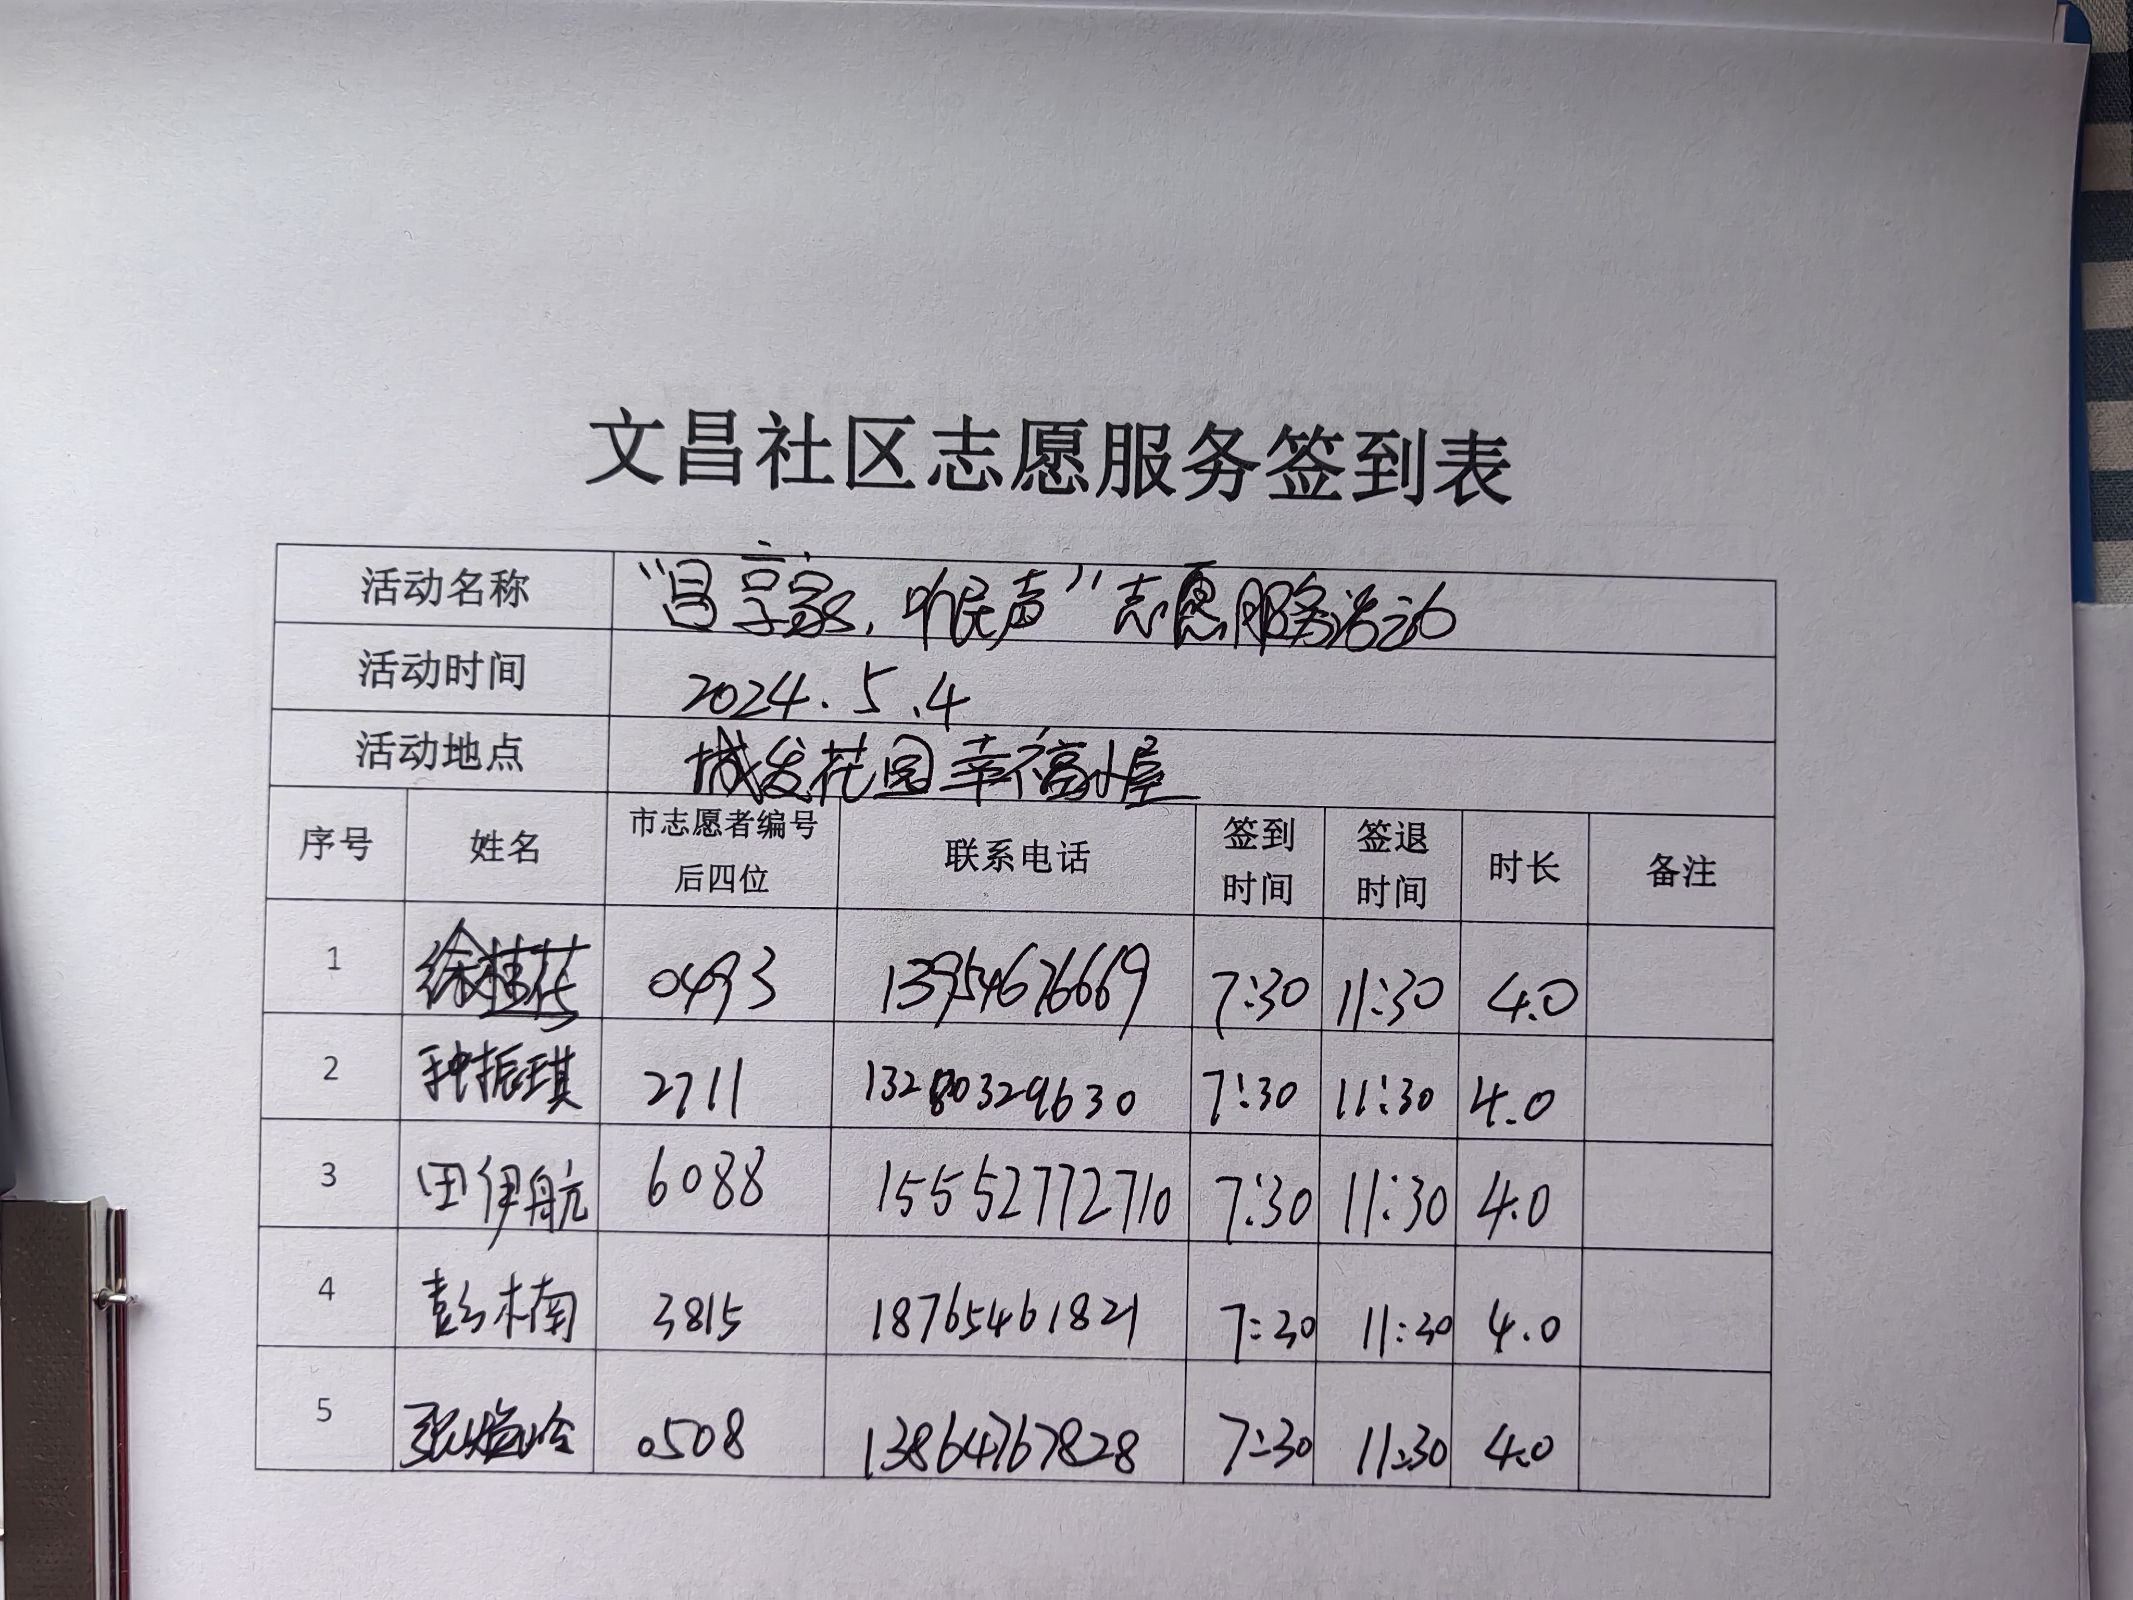 文昌社区志愿服务签到表
活动名称 “昌享家，听民声”志愿服务活动
活动时间 2024.5.4
活动地点 城发花园幸福小屋
序号 姓名 市志愿者编号后四位 联系电话 签到时间 签退时间 时长 备注
1 徐桂花 0493 13954676669 7:30 11:30 4.0
2 种振琪 2711 13280329630 7:30 11:30 4.0
3 田伊航 6088 15552772710 7:30 11:30 4.0
4 彭楠 3815 18765461821 7:30 11:30 4.0
5 张 0508 13864767828 7:30 11:30 4.0